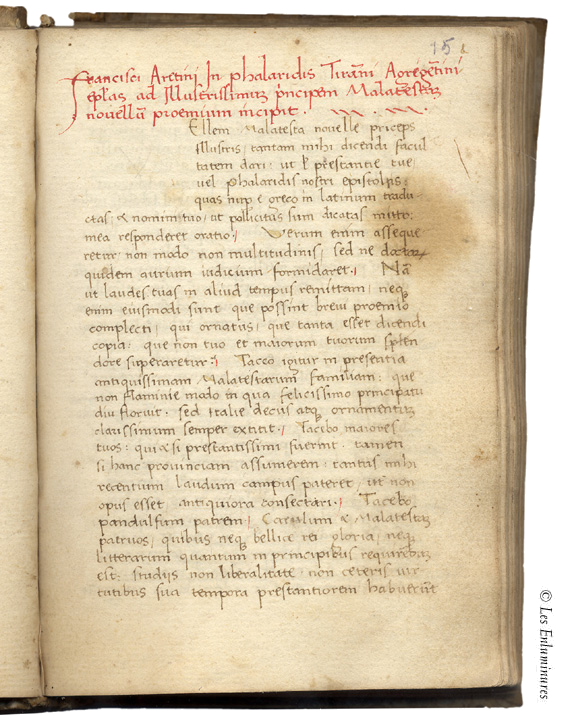 15
Francisci Aretinj In phalaridis Tiram̄ni Agregētini
epl̄as ad Illustrissimuȝ prīncipem Malatestaȝ
novellū proemium incipit .
Ellem Malatesta novelle prīceps
Illustris, tantam mihi dicendi facul
tatem dari: ut vel prestantie tue
vel phalaridis nostri epistolis:
quas nup e greco in latinum tradu
ctas, & nomini tuo, ut pollicitus sum dicatas mitto:
mea responderet oratio. Verum enim asseque
retur non modo non multitudinis, sed ne doctoꝝ
quidem aurium iudicium formidaret. Nā
ut laudes tuas in aliud tempus remittam, neqȝ
enim eiusmodi sunt que possint brevi proemio
complecti, qui ornatus, que tanta esset dicendi
copia: que non tuo et maiorum tuorum splen
dore superaretur. Taceo igitur in presentia
antiquissimam Malatestarum familiam: que
non flaminie modo in qua felicissimo principatu
diu floruit. sed Italie decus atqȝ ornamentuȝ
clarissimum semper extitit. Tacebo maiores
tuos: qui & si prestantissimi fuerint. tamen
si hanc provinciam assumerem: tantus mihi
recentium laudum campus pateret, ut non
opus esset antiquiora consectari. Tacebo
pandulfum patrem, Carulum & Malatestaȝ
patruos, quibus neqȝ bellice rei gloria, neqȝ
litterarum quantum in principibus requirenduȝ
est: studijs non liberalitate, non ceteris vir
tutibus sua tempora prestantiorem habuerūt
© Les Enluminures